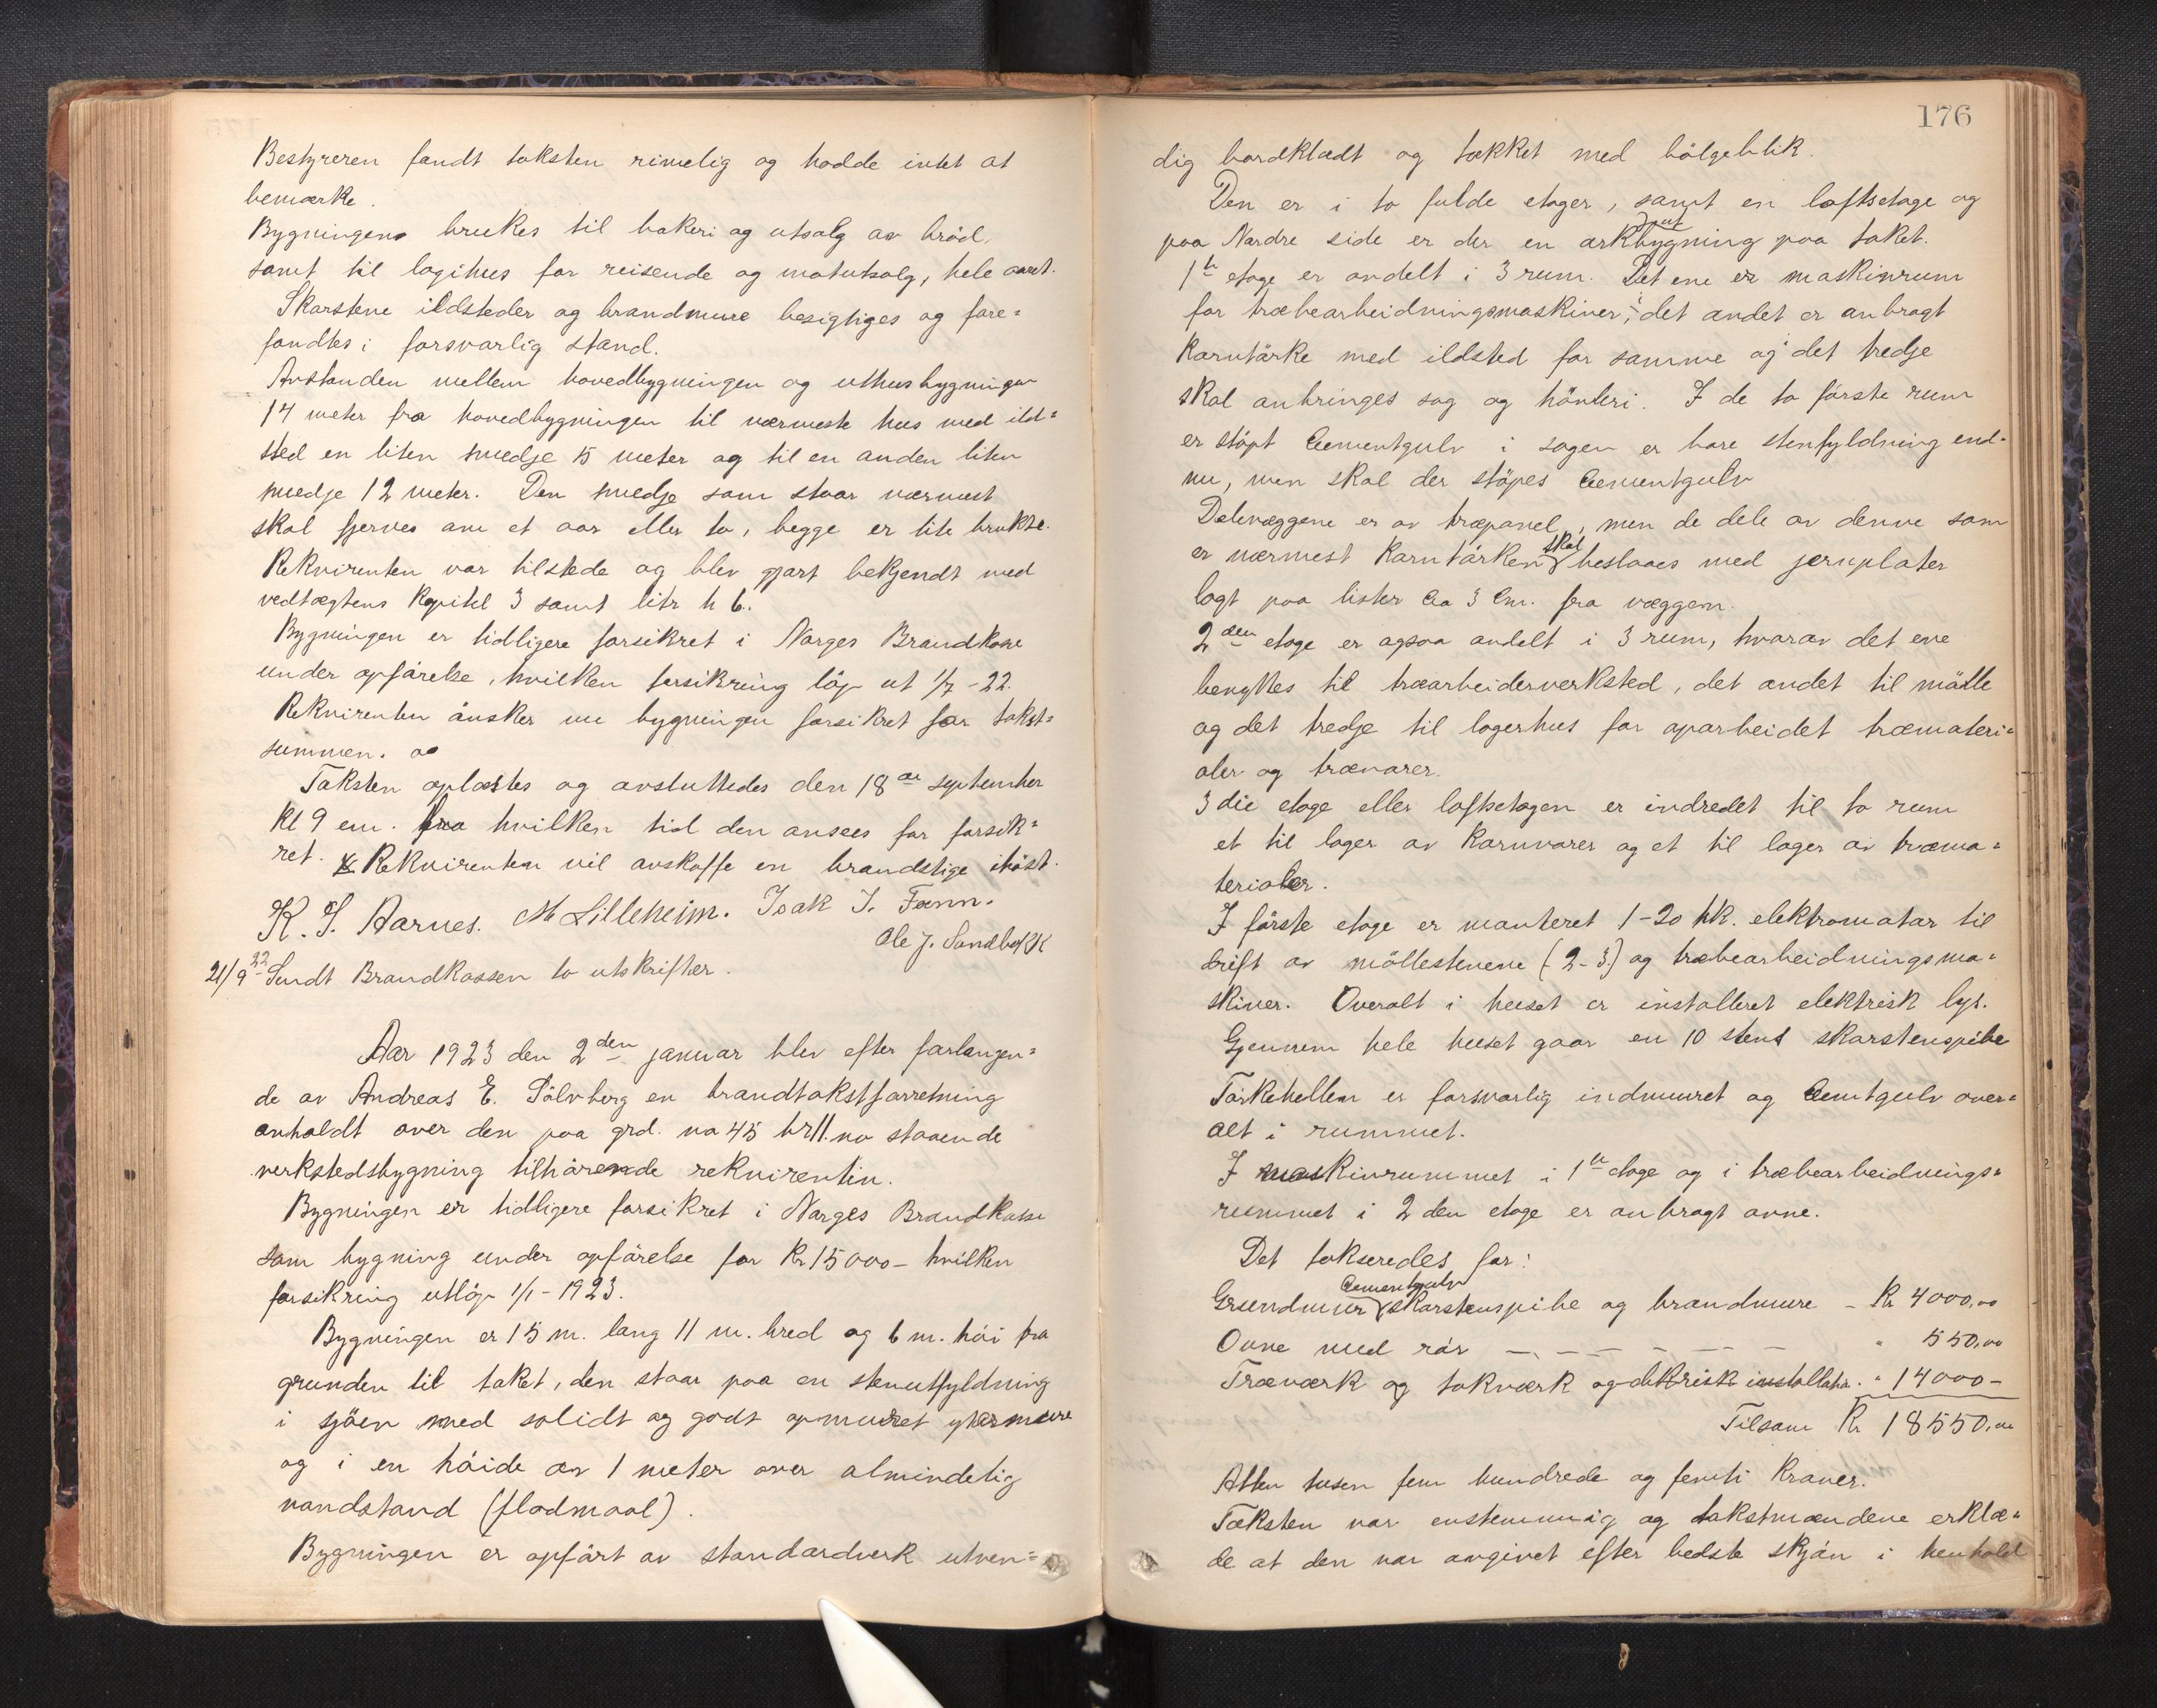 Bestyreren fandt taksten rimelig og hadde intet at
bemærke.
Bygningens brukes til bakeri og utsalg av bröd,
samt til logihus for reisende og matutsalg, hele aaret.
Skorstene ildsteder og brandmure besigtiges og fore=
fandtes i forsvarlig stand.
Avstanden mellem hovedbygningen og uthusbygningen
14 meter fra hovedbygningen til nærmeste hus med ild=
sted en liten smedje 15 meter og til en anden liten
smedje 12 meter. Den smedje som staar nærmest
skal fjernes om et aar eller to, begge er lite brukte.
Rekvirenten var tilstede og blev gjort bekjendt med
vedtægtens Kapitel 3 samt litr h 6.
Bygningen er tidligere forsikret i Norges Brandkasse
under opförelse, hvilken forsikring löp ut 1/7-22.
Rekvirenten önsker nu bygningen forsikret for takst=
summen.
Taksten oplæstes og avsluttedes den 18de september
kl 9 em. fra hvilken tid den ansees for forsik=
ret. Rekvirenten vil avskaffe en brandstige ihöst.
K. S. Aarnes. M Lilleheim. Isak J. Fonn.
Ole J. Sandbekk
21/9 22 Sendt Brandkassen to utskrifter.
Aar 1923 den 2den januar blev efter forlangen=
de av Andreas E. Sölvberg en brandtakstforretning
avholdt over den paa grd. no 45 br 11. no staaende
verkstedsbygning tilhörende rekvirentin.
Bygningen er tidligere forsikret i Norges Brandkasse
som bygning under opförelse for Kr 15000- hvilken
forsikring utlöp 1/1-1923.
Bygningen er 15 m. lang 11 m. bred og 6 m. höi fra
grunden til taket, den staar paa en stenutfyldning
i sjöen med solidt og godt opmuret ytermure
og i en höide av 1 meter over almindelig
vandstand (flodmaal).
Bygningen er opfört av standardverk utven=
176
dig bordklædt og tækket med bölgeblik.
Den er i to fulde etager, samt en loftsetage og
paa Nordre side er der en arkutbygning paa taket.
1te etage er avdelt i 3 rum. Det ene er maskinrum
for træbearbeidningsmaskiner, i det andet er anbragt
Korntörke med ildsted for samme og det tredje
skal anbringes sag og hövleri. I de to förste rum
er stöpt Cementgulv i sagen er bare stenfyldning end=
nu, men skal der stöpes Cementgulv
Delevæggene er av træpanel, men de dele av denne som
er nærmest Korntörken skal beslaaes med jernplater
lagt paa lister Ca 3 Cm. fra væggen.
2den etage er ogsaa avdelt i 3 rum, hvorav det ene
benyttes til træarbeiderverksted, det andet til mölle
og det tredje til lagerhus for oparbeidet træmateri=
aler og trævarer.
3die etage eller loftsetagen er indredet til to rum
et til lager av Kornvarer og et til lager av træma=
terialer.
I förste etage er monteret 1-20 hk. elektromotor til
drift av möllestenene (2-3) og træbearbeidningsma=
skiner. Overalt i huset er installeret elektrisk lys.
Gjennem hele huset gaar en 10 stens skorstenspibe
Törkehellen er forsvarlig indmuret og Cemtgulv over=
alt i rummet.
I maskinrummet i 1te etage og i træbearbeidnings=
rummet i 2den etage er anbragt ovne.
Det takseredes for:
Grundmur Cementgulv skorstenspibe og brandmure - Kr 4000,00
Ovne med rör - - - - - - - " 550,00
Træværk og takværk og elektrisk installatio. " 14000-
Tilsam Kr 18550,00
Atten tusen fem hundrede og femti Kroner.
Taksten var enstemmig og takstmændene erklæ=
de at den var avgivet efter bedste skjön i henhold